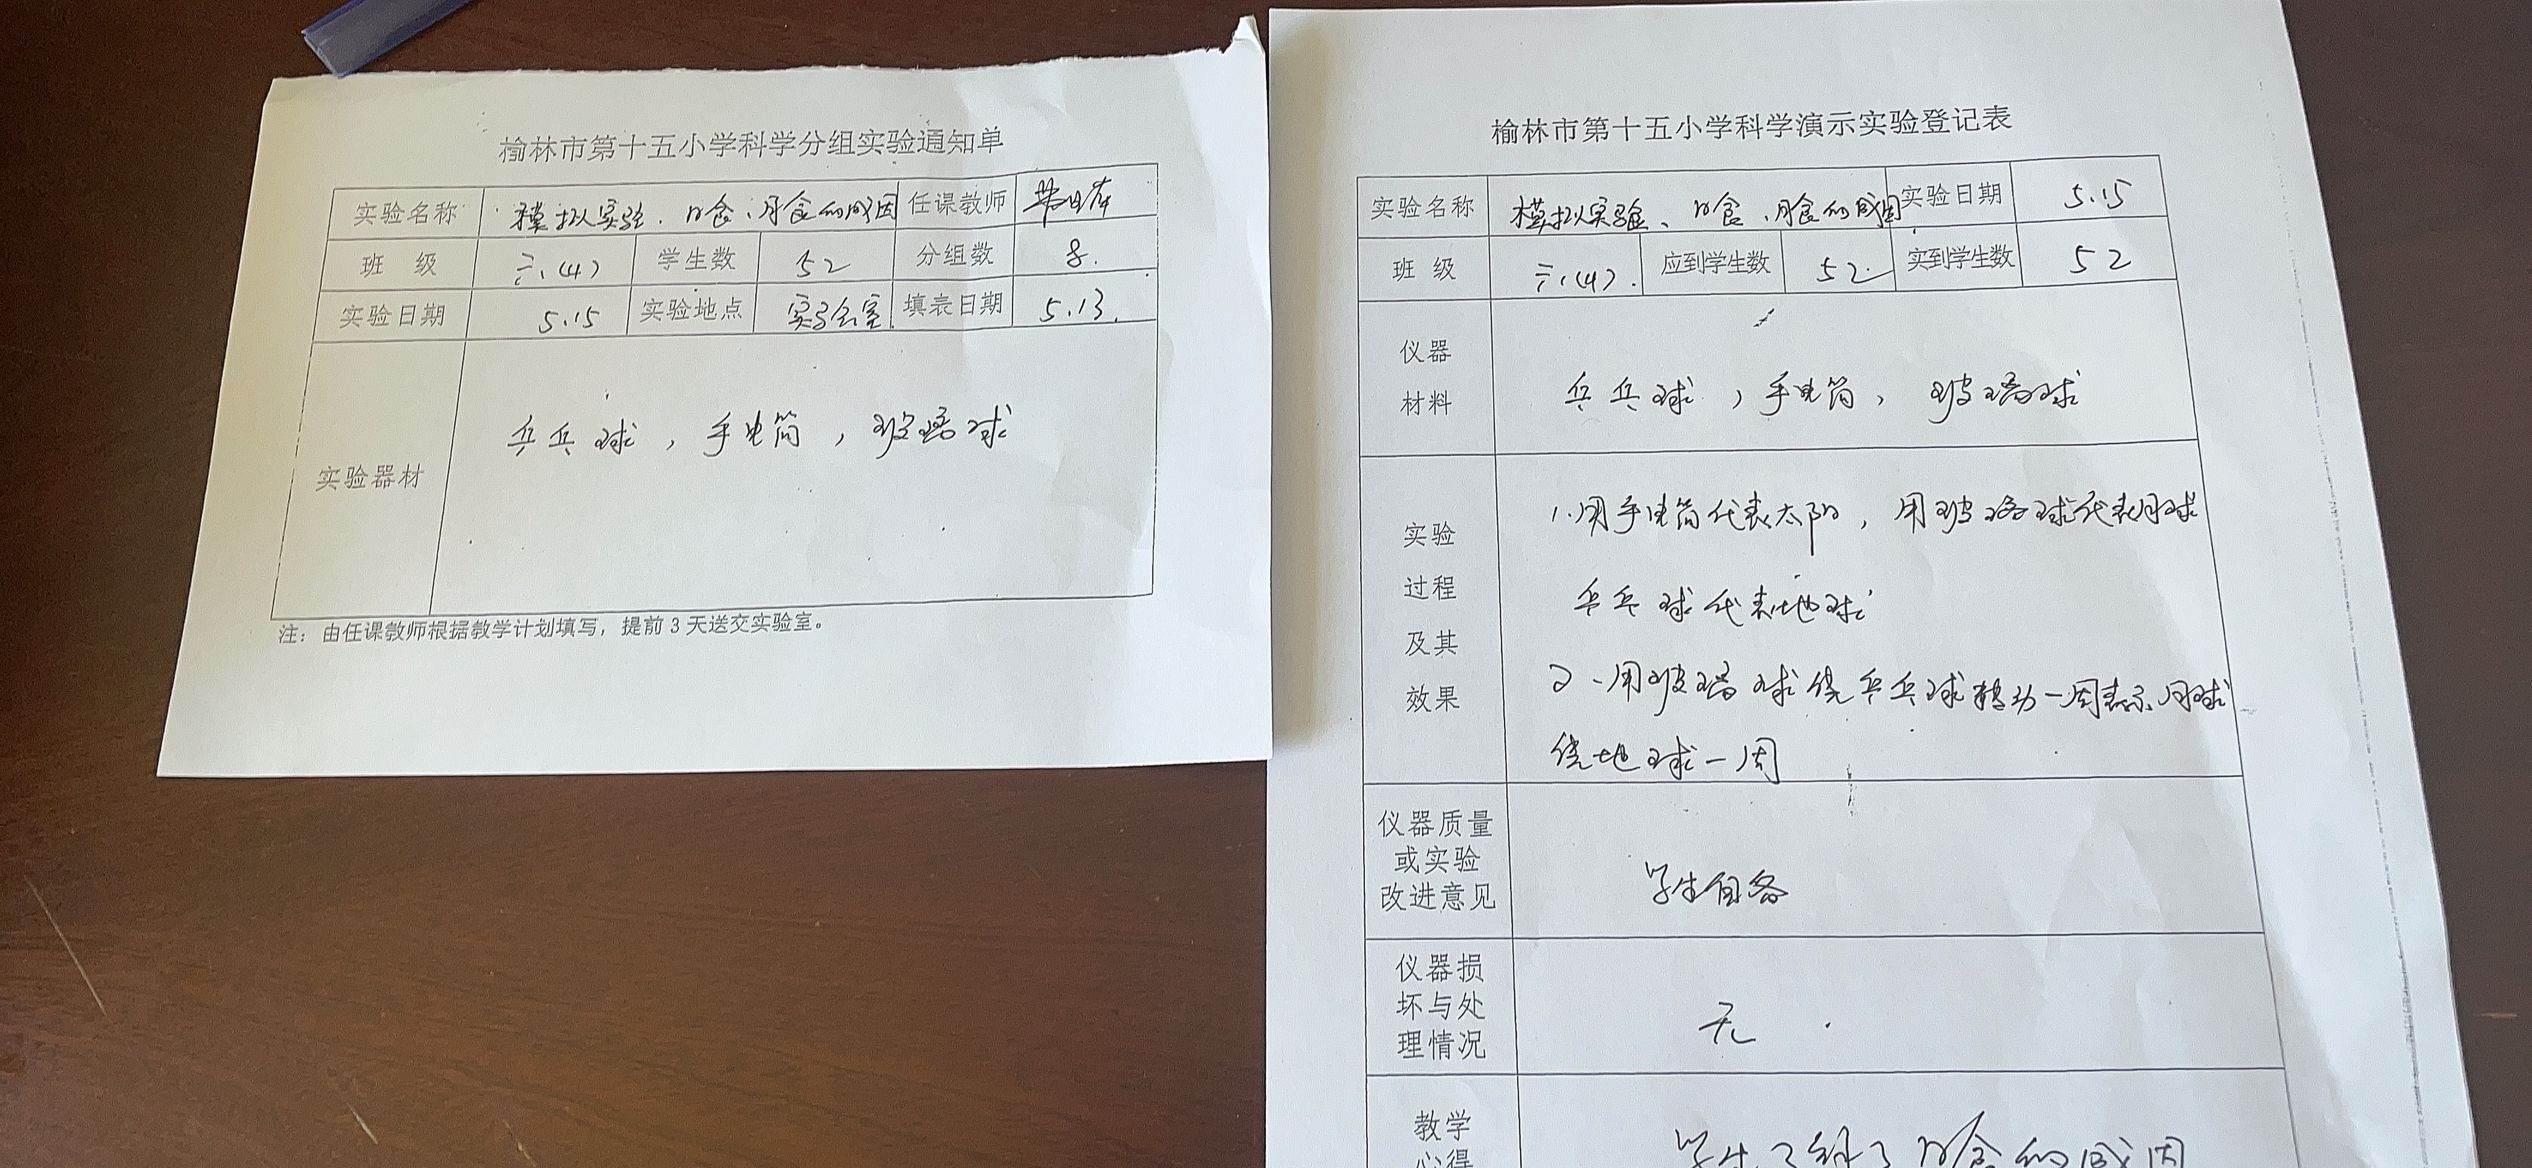 榆林市第十五小学科学分组实验通知单
实验名称 模拟实验、日食、月食的成因 任课教师
班 级 六(4) 学生数 52 分组数 8.
实验日期 5.15 实验地点 实验室 填表日期 5.13.
实验器材 乒乓球，手电筒，玻璃球
注：由任课教师根据教学计划填写，提前3天送交实验室。
榆林市第十五小学科学演示实验登记表
实验名称 模拟实验、日食、月食的成因 实验日期 5.15
班 级 六(4). 应到学生数 52. 实到学生数 52
仪器
材料
乒乓球，手电筒，玻璃球
实验
过程
及其
效果
1.用手电筒代表太阳，用玻璃球代表月球
乒乓球代表地球
2、用玻璃球绕乒乓球转动一周表示月球
绕地球一周
仪器质量
或实验
改进意见
学生自备
仪器损
坏与处
理情况
无.
教学
心得
学生了解了日食的成因